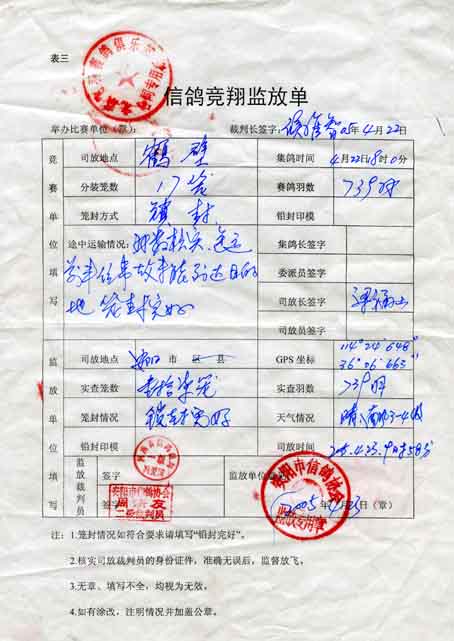 表三
信鸽竞翔监放单
举办比赛单位(章): 裁判长签字: 05年4月22日
竞赛单位填写
司放地点 鹤壁 集鸽时间 4月22日18时0分
分装笼数 17笼 赛鸽羽数 739羽
笼封方式 锁封 铅封印模
途中运输情况: 集鸽长签字
委派员签字
地 笼封完好 司放长签字
司放员签字
监放单位填写
司放地点 安阳市 区 县 GPS坐标 114°24′648″
36°06′663″
实查笼数 壹拾柒笼 实查羽数 739羽
笼封情况 锁封完好 天气情况 晴、南风3-4级
铅封印模 司放时间 2005.4.23.
监放裁判员 签字 监放单位
签字 2005年4月23日(章)
安阳市信鸽协会
二级裁判员
安阳市信鸽协会
监放专用章
注: 1.笼封情况如符合要求请填写“铅封完好”。
2.核实司放裁判员的身份证件,准确无误后,监督放飞,
3.无章、填写不全,均视为无效。
4.如有涂改,注明情况并加盖公章。